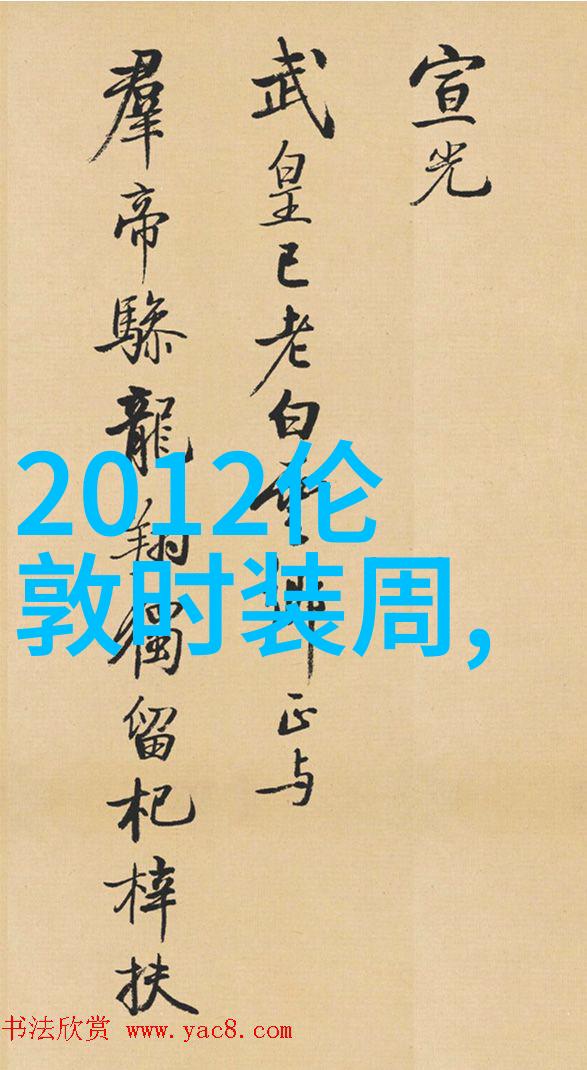 宣光
武皇已老白雲鄉正与
羣帝驂龍翔獨留杞梓扶
2012伦
敦时装周,
书法欣赏 www.yac8.com